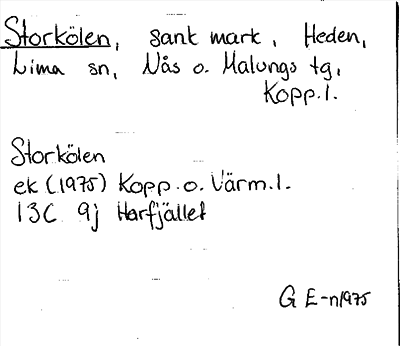 Storkölen, sank mark, Heden,
Lima sn, Nås o. Malungs tg,
Kopp. l.
Storkölen
ek (1975) Kopp. o. Värm. l.
13C 9j Harfjället
G E-n 1975